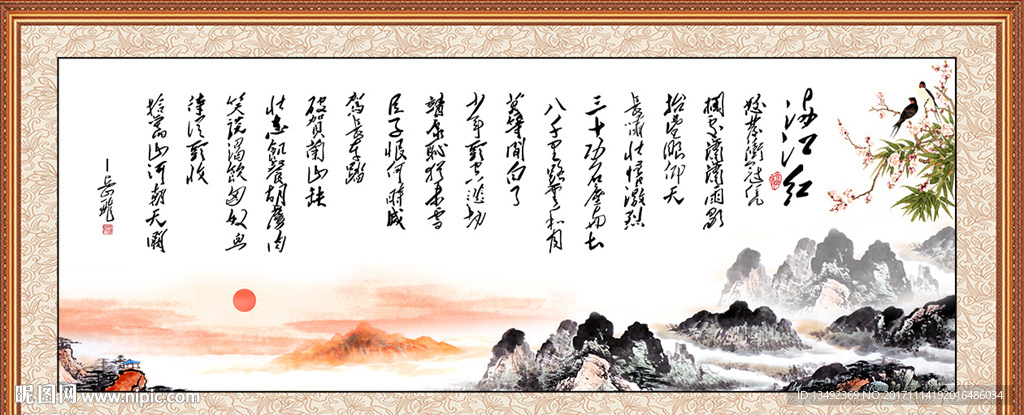 满江红
怒发衝冠凭
栏处潇潇雨歇
抬望眼仰天
长啸壮怀激烈
三十功名尘与土
八千里路云和月
莫等闲白了
少年头空悲切
靖康耻犹未雪
臣子恨何时灭
驾长车踏
破贺兰山缺
壮志饥餐胡虏肉
笑谈渴饮匈奴血
待从头收
拾旧山河朝天阙
岳飞
昵图网 www.nipic.com
ID:13492369 NO:20171114192016486034